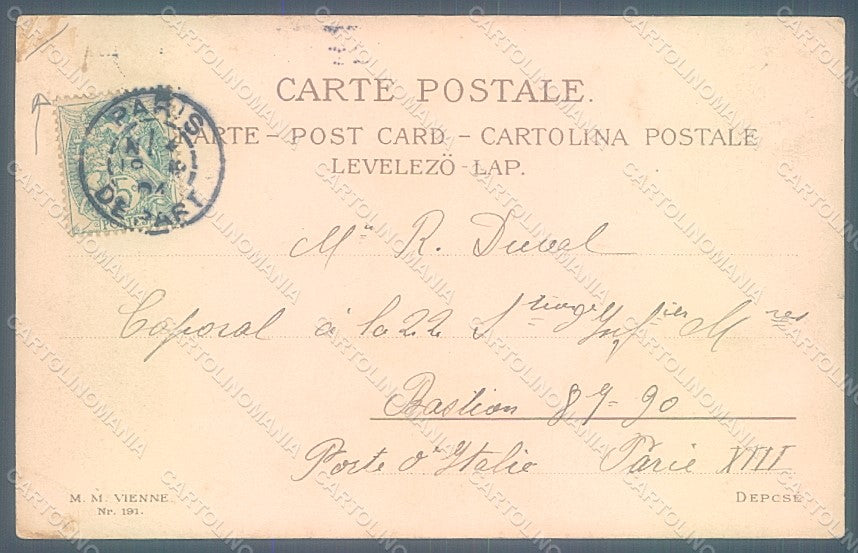 CARTE POSTALE.
ARTE – POST CARD – CARTOLINA POSTALE
LEVELEZÖ-LAP.
PARIS
DEPART
5c
Mr R. Duval
Caporal à la 22 Stion Infiers Mres
Bastion 87-90
Porte d'Italie Paris XIII
M. M. VIENNE.
Nr. 191.
DEPOSÉ
CARTOLINOMANIA